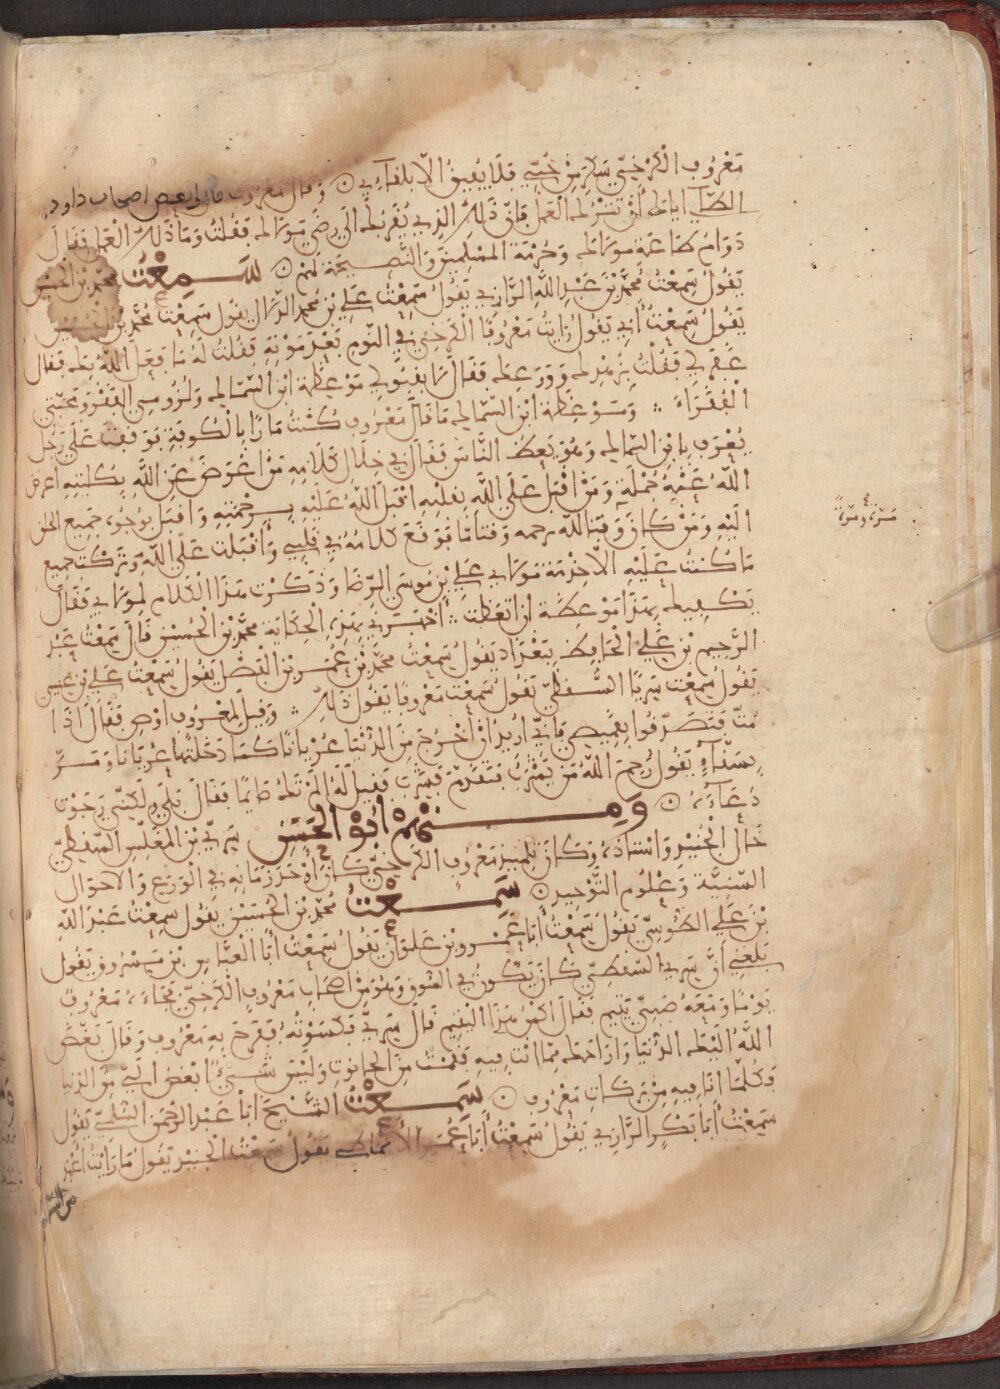 مَعْرُوفٍ الْكَرْخِيّ سَكِرَ مِنْ حُبِّي فَلَا يُفِيقُ إِلَّا بِلِقَآءِي ۞ وَقَالَ مَعْرُوفٌ قال لي بعض اصحاب داود
الطَّآءِي اِيَّاكَ أَنْ تَتْرُكَ الْعَمَلَ فَإِنَّ ذَلِكَ الذِي يُقَرِّبُكَ الَى رِضَى مَوْلَاكَ فَقُلْتُ وَمَا ذَلِكَ الْعَمَلُ فَقَالَ
دَوَامُ طَاعَةِ مَوْلَاكَ وَحُرْمَةِ الْمُسْلِمِينَ وَالنَّصِيحَةِ لَهُمْ ۞ سَمِعْتُ مُحَمَّد بْن الْحُسَيْن
يَقُولُ سَمِعْتُ مُحَمَّدَ بْنَ عَبْدِ اللَّهِ الرَّازِي يَقُولُ سَمِعْتُ عَلِيَّ بْنَ مُحَمَّدٍ الدَّلَّالَ يَقُول سَمِعْتُ مُحَمَّدَ بْنَ الْحُسَيْن
يَقُولُ سَمِعْتُ أَبِي يَقُولُ رَأَيْتُ مَعْرُوفًا الْكَرْخِيَّ فِي النَّوْمِ بَعْدَ مَوْتِهِ فَقُلْتُ لَهُ مَا فَعَلَ اللَّهُ بِكَ فَقَال
غَفَرَ لِي فَقُلْتُ بِزُهْدِكَ وَوَرَعِكَ فَقَالَ لَا بِقَبُولِي مَوْعِظَةَ ابْنِ السَّمَّاكِ وَلُزُومِي الْفَقْرَ وَمَحَبَّتِي
الْفُقَرَآءَ ؞ وَمَوْعِظَةُ ابْنِ السَّمَّاكِ مَا قَالَ مَعْرُوفٌ كُنْتُ مَارًّا بِالْكُوفَةِ فَوَقَفْتُ عَلَى رَجُلٍ
يُعْرَفُ بِابْنِ السَّمَّاكِ وَهُوَ يَعِظُ النَّاسَ فَقَالَ فِي خِلَالِ كَلَامِهِ مَنْ اَعْرَضَ عَنِ اللَّهِ بِكُلِّيَّتِهِ اعرض
اللَّهُ عَنْهُ جُمْلَةً وَمَنْ اَقْبَلَ عَلَى اللَّهِ بِقَلْبِهِ اَقْبَلَ اللَّهُ عَلَيْهِ بِرَحْمَتِهِ وَاَقْبَلَ بِوُجُوهِ جَمِيعِ الخلق
الَيْهِ وَمَنْ كَانَ وَقْتًا اللَّهُ يرحمه وقتاما فَوَقَعَ كَلَامُهُ فِي قَلْبِي وَأَقْبَلْتُ عَلَى اللَّهِ وَتَرَكْتُ جميع
مَرَّةً وَمَرَّةً
مَا كُنْتُ عَلَيْهِ الَّا خِدْمَةَ مَوْلَاي عَلِيِّ بْنِ مُوسَى الرِّضَا وَذَكَرْتُ هَذَا الْكَلَامَ لِمَوْلَاي فَقَالَ
يَكْفِيكَ بِهَذَا مَوْعِظَةً اِنِ اتَّعَظْتَ ؞ أَخْبَرَنِي بِهَذِهِ الْحِكَايَةِ مُحَمَّد بْنُ الْحُسَيْنِ قَالَ سَمِعْتُ عَبْدَ
الرَّحِيمِ بْنَ عَلِيٍّ الْحَافِظَ بِبَغْدَادَ يَقُولُ سَمِعْتُ مُحَمَّدَ بْنَ عُمَرَ بْنِ الْفَضْلِ يَقُولُ سَمِعْتُ عَلِيَّ بْنَ عِيسَى
يَقُولُ سَمِعْتُ سَرِيًّا السَّقَطِيَّ يَقُولُ سَمِعْتُ مَعْرُوفًا يَقُولُ ذَلِكَ ؞ وَقِيلَ لِمَعْرُوفٍ اَوْصِ فَقَالَ اِذَا
مُتُّ فَتَصَدَّقُوا بِقَمِيصِي فَإِنِّي أُرِيدُ أَنْ أَخْرُجَ مِنَ الدُّنْيَا عُرْيَانًا كَمَا دَخَلْتُهَا عُرْيَانًا وَمَرَّ
بِسَقَّآءٍ يَقُولُ رَحِمَ اللَّهُ مَنْ يَشْرَبُ فَتَقَدَّمَ فَشَرِبَ فَقِيلَ لَهُ أَلَمْ تَكُ صَايِمًا فَقَالَ بَلَى وَلَكِنِّي رَجَوْتُ
دُعَآءَهُ ۞ وَمِنْهُمْ أَبُو الْحَسَنِ سَرِيُّ بْنُ الْمُغَلِّسِ السَّقَطِيُّ
خَالُ الْجُنَيْدِ وَاُسْتَاذُهُ وَكَانَ تِلْمِيذَ مَعْرُوفٍ الْكَرْخِيِّ كَانَ أَوْحَدَ زَمَانِهِ فِي الْوَرَعِ وَالْاحْوَالِ
السَّنِيَّةِ وَعُلُومِ التَّوْحِيدِ ۞ سَمِعْتُ مُحَمَّدَ بْنَ الْحُسَيْنِ يَقُولُ سَمِعْتُ عَبْدَ اللَّهِ
بْنَ عَلِي الطُّوسِيَّ يَقُولُ سَمِعْتُ أَبَا عَمْرِو بْنَ عَلَوَانَ يَقُولُ سَمِعْتُ أَبَا الْعَبَّاسِ بْنَ مَسْرُوقٍ يَقُول
بَلَغَنِي أَنَّ سَرِيَّ السَّقَطِيَّ كَانَ يَكُونُ فِي السُّوقِ وَهُوَ مِنْ اصْحَابِ مَعْرُوفٍ الْكَرْخِيِّ فَجَاءَهُ مَعْرُوفٌ
يَوْمًا وَمَعَهُ صَبِيٌّ يَتِيمٌ فَقَالَ اكْسُ هَذَا الْيَتِيمَ قَالَ سَرِيٌّ فَكَسَوْتُهُ فَفَرِحَ بِهِ مَعْرُوفٌ وَقَالَ بَغَّضَ
اللَّهُ الَيْكَ الدُّنْيَا وَأَرَاحَكَ مِمَّا انْتَ فِيهِ فَقُمْتُ مِنَ الْحَانُوتِ وَلَيْسَ شَيْءٌ ابْغَضَ الَيَّ مِنَ الدُّنْيَا
وَكُلُّ مَا انَا فِيهِ مِنْ بَرَكَاتِ مَعْرُوفٍ ۞ سَمِعْتُ الشَّيْخَ ابَا عَبْدِ الرَّحْمَنِ السُّلَمِيَّ يَقُول
سَمِعْتُ أَبَا بَكْرٍ الرَّازِي يَقُولُ سَمِعْتُ أَبَا عُمَرَ الْأَنْمَاطِي يَقُولُ سَمِعْتُ الْجُنَيْدَ يَقُولُ مَا رَأَيْتُ أَعْبَدَ
من السري